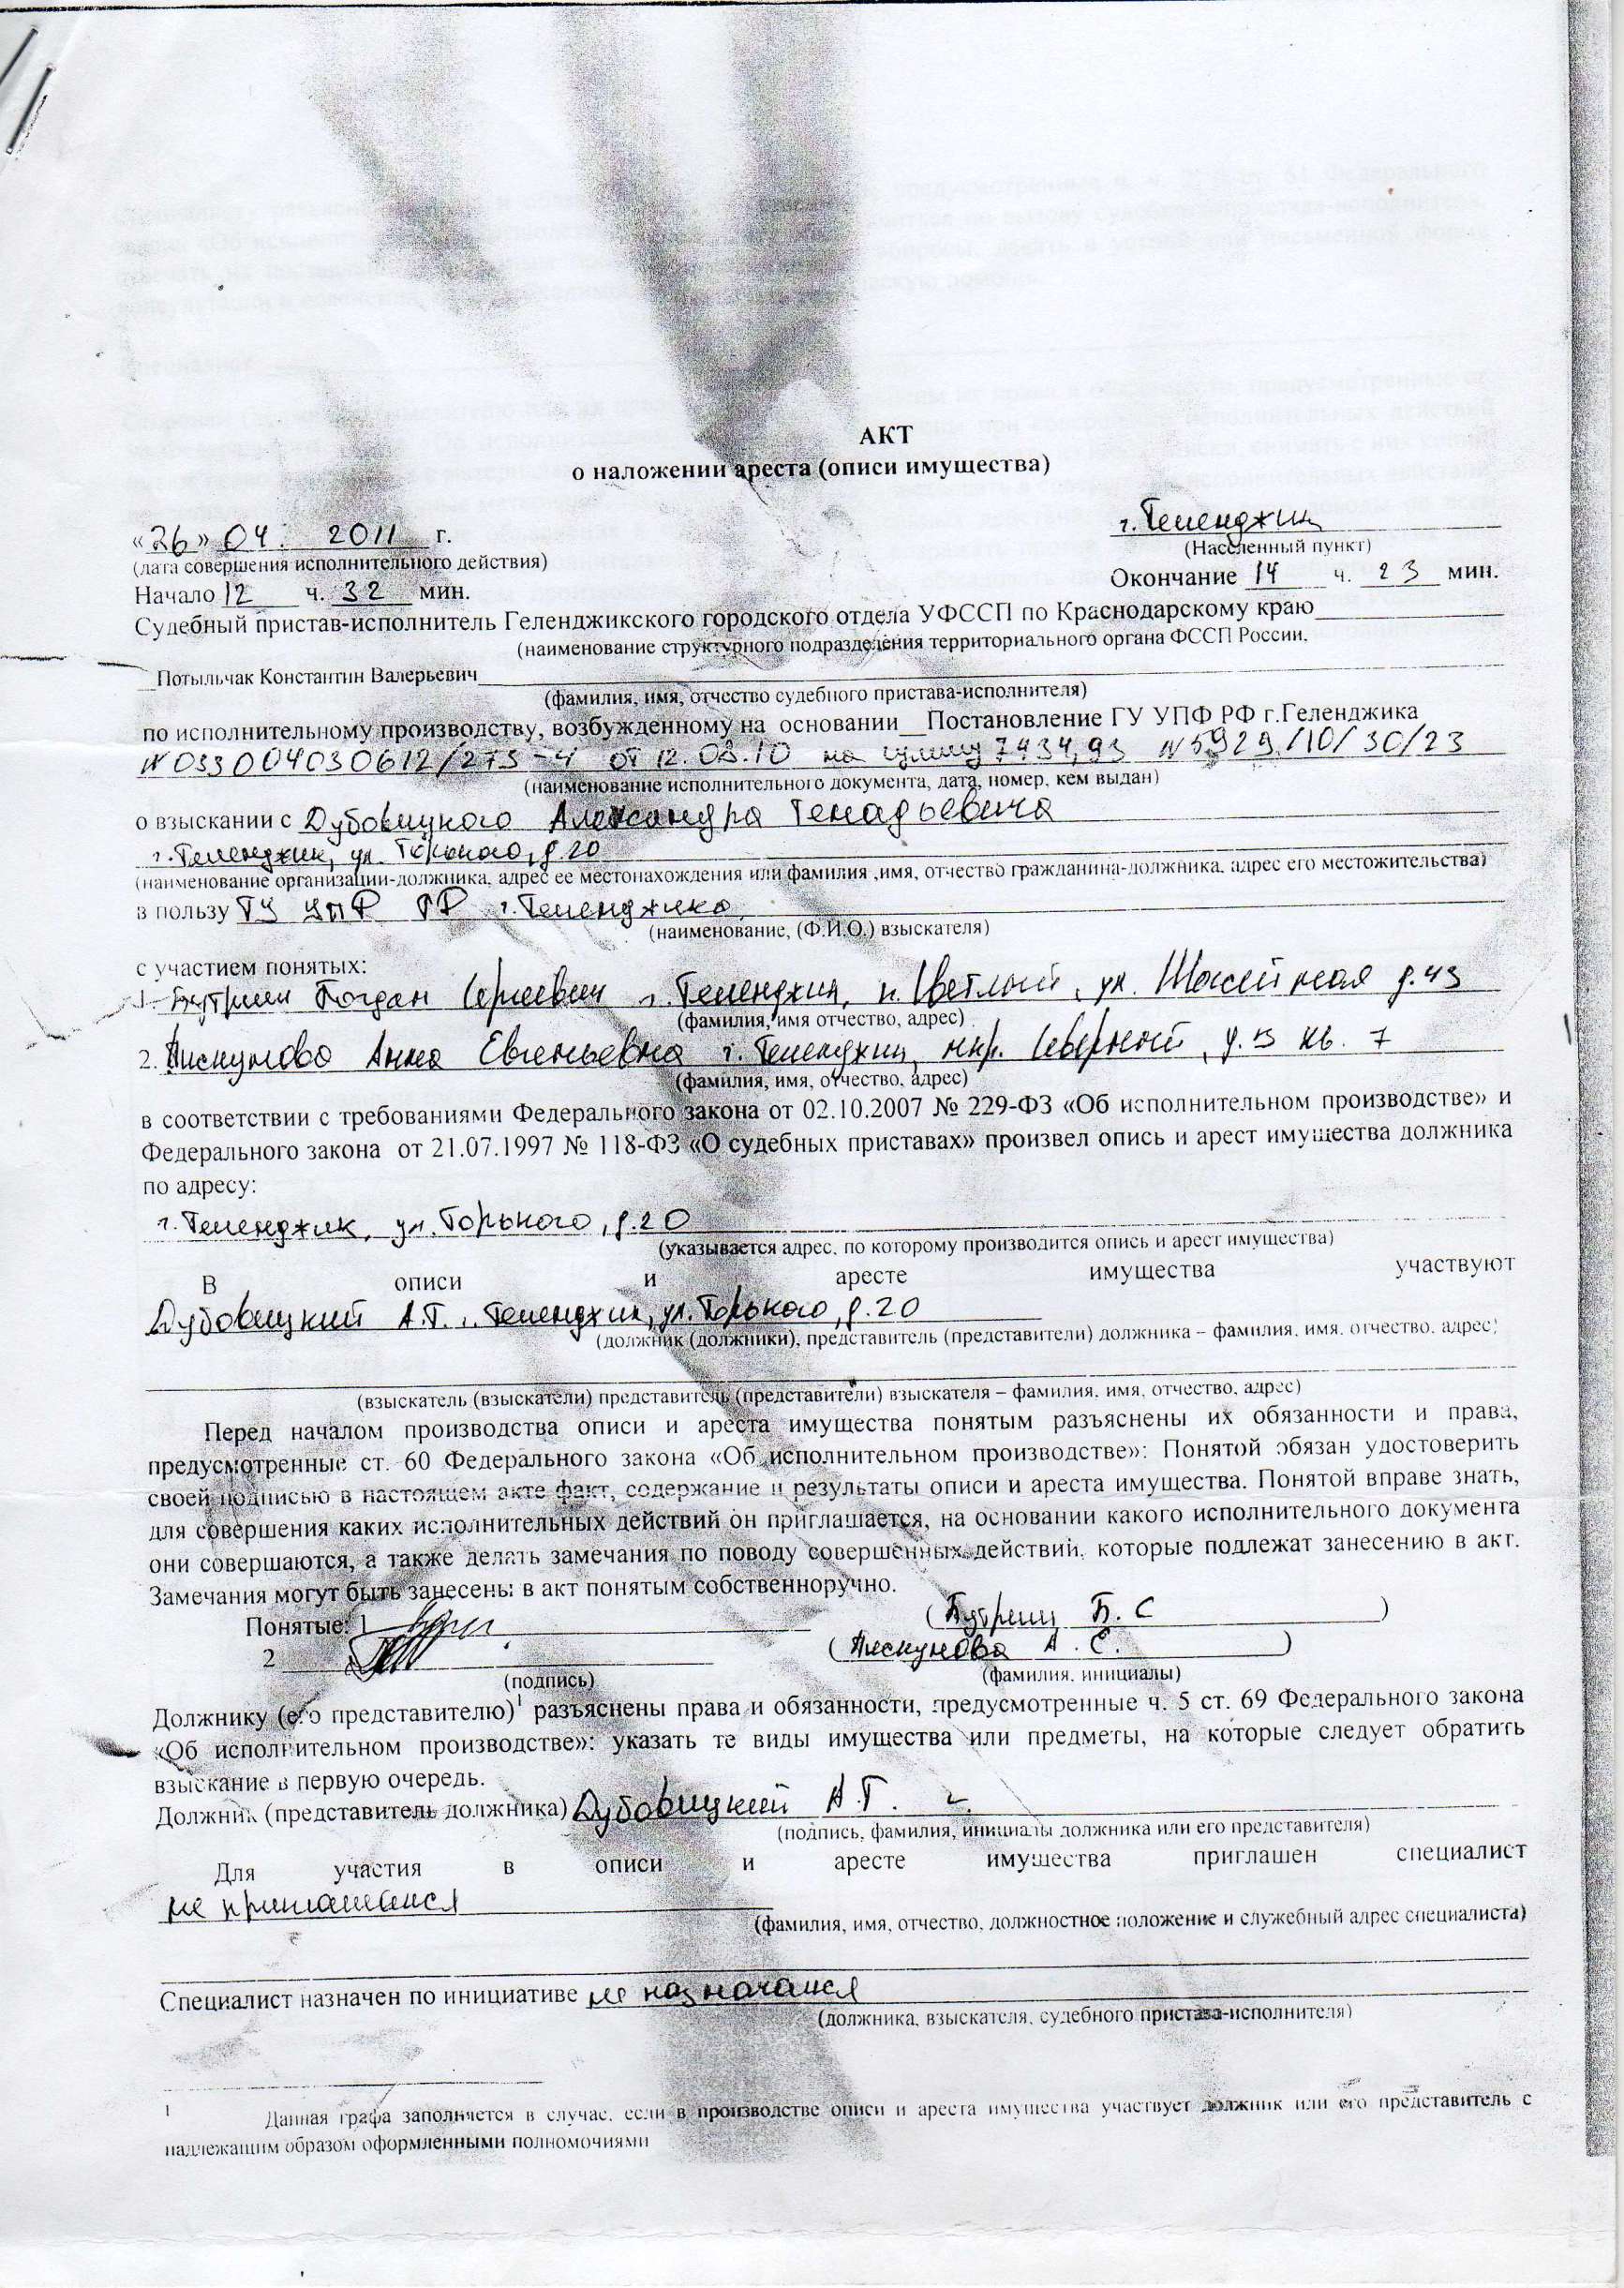 АКТ
о наложении ареста (описи имущества)
«26» 04. 2011 г.
г. Геленджик
(дата совершения исполнительного действия)
(Населенный пункт)
Начало 12 ч. 32 мин.
Окончание 14 ч. 23 мин.
Судебный пристав-исполнитель Геленджикского городского отдела УФССП по Краснодарскому краю
(наименование структурного подразделения территориального органа ФССП России.
Потыльчак Константин Валерьевич
(фамилия, имя, отчество судебного пристава-исполнителя)
по исполнительному производству, возбужденному на основании Постановление ГУ УПФ РФ г.Геленджика
от 12.03.10 на сумму 7434,93 N 5929/10/30/23
(наименование исполнительного документа, дата, номер, кем выдан)
о взыскании с Дубовицкого Александра Генадьевича
г. Геленджик, ул. Горького, д. 20
(наименование организации-должника, адрес ее местонахождения или фамилия ,имя, отчество гражданина-должника, адрес его местожительства)
в пользу ГУ УПФ РФ г. Геленджика
(наименование, (Ф.И.О.) взыскателя)
с участием понятых:
1. Богдан Сергеевич г. Геленджик, п. Светлый, ул. д. 43
(фамилия, имя отчество, адрес)
2. Пискунова Анна Евгеньевна г. Геленджик, мкр. Северный, д. кв. 7
(фамилия, имя, отчество, адрес)
в соответствии с требованиями Федерального закона от 02.10.2007 № 229-ФЗ «Об исполнительном производстве» и
Федерального закона от 21.07.1997 № 118-ФЗ «О судебных приставах» произвел опись и арест имущества должника
по адресу:
г. Геленджик, ул. Горького, д. 20
(указывается адрес, по которому производится опись и арест имущества)
В описи и аресте имущества участвуют
Дубовицкий А.Г. г. Геленджик, ул. Горького, д. 20
(должник (должники), представитель (представители) должника – фамилия, имя, отчество, адрес)
(взыскатель (взыскатели) представитель (представители) взыскателя – фамилия, имя, отчество, адрес)
Перед началом производства описи и ареста имущества понятым разъяснены их обязанности и права,
предусмотренные ст. 60 Федерального закона «Об исполнительном производстве»: Понятой обязан удостоверить
своей подписью в настоящем акте факт, содержание и результаты описи и ареста имущества. Понятой вправе знать,
для совершения каких исполнительных действий он приглашается, на основании какого исполнительного документа
они совершаются, а также делать замечания по поводу совершенных действий, которые подлежат занесению в акт.
Замечания могут быть занесены в акт понятым собственноручно.
Понятые: 1 ( Б. С )
2 ( Пискунова А. Е. )
(подпись)
(фамилия, инициалы)
Должнику (его представителю)¹ разъяснены права и обязанности, предусмотренные ч. 5 ст. 69 Федерального закона
«Об исполнительном производстве»: указать те виды имущества или предметы, на которые следует обратить
взыскание в первую очередь.
Должник (представитель должника) Дубовицкий А.Г.
(подпись, фамилия, инициалы должника или его представителя)
Для участия в описи и аресте имущества приглашен специалист
не приглашался
(фамилия, имя, отчество, должностное положение и служебный адрес специалиста)
Специалист назначен по инициативе не назначался
(должника, взыскателя, судебного пристава-исполнителя)
1 Данная графа заполняется в случае, если в производстве описи и ареста имущества участвует должник или его представитель с
надлежащим образом оформленными полномочиями